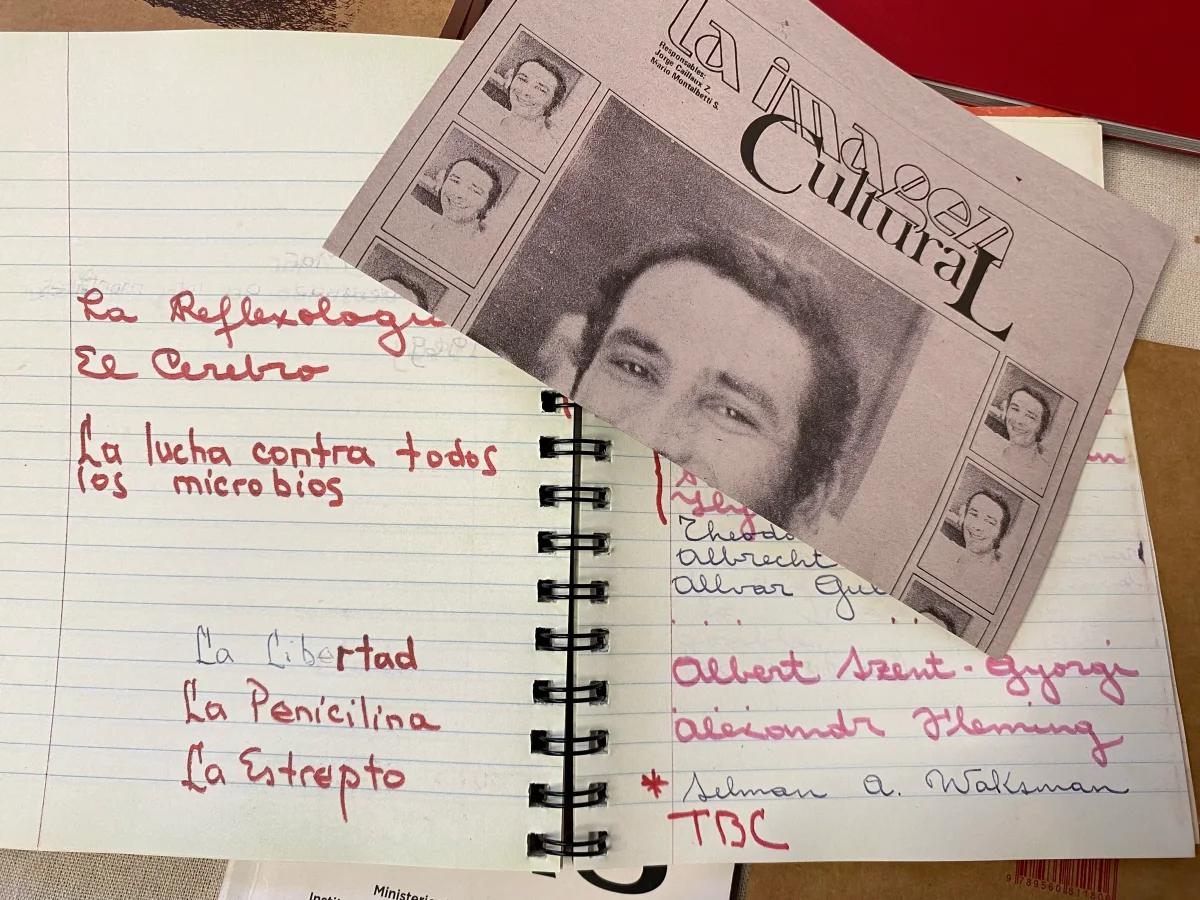 La Reflexologí
El Cerebro
La lucha contra todos
los microbios
La Libertad
La Penicilina
La Estrepto
La imagen
Cultural
Responsables:
Jorge Caillaux Z.
Mario Montalbetti S.
Theodo
Albrecht
Allvar Gul
. . . . .
Albert Szent-Gyorgi
Alexandr Fleming
* Selman A. Waksman
TBC
Ministerio
Instit